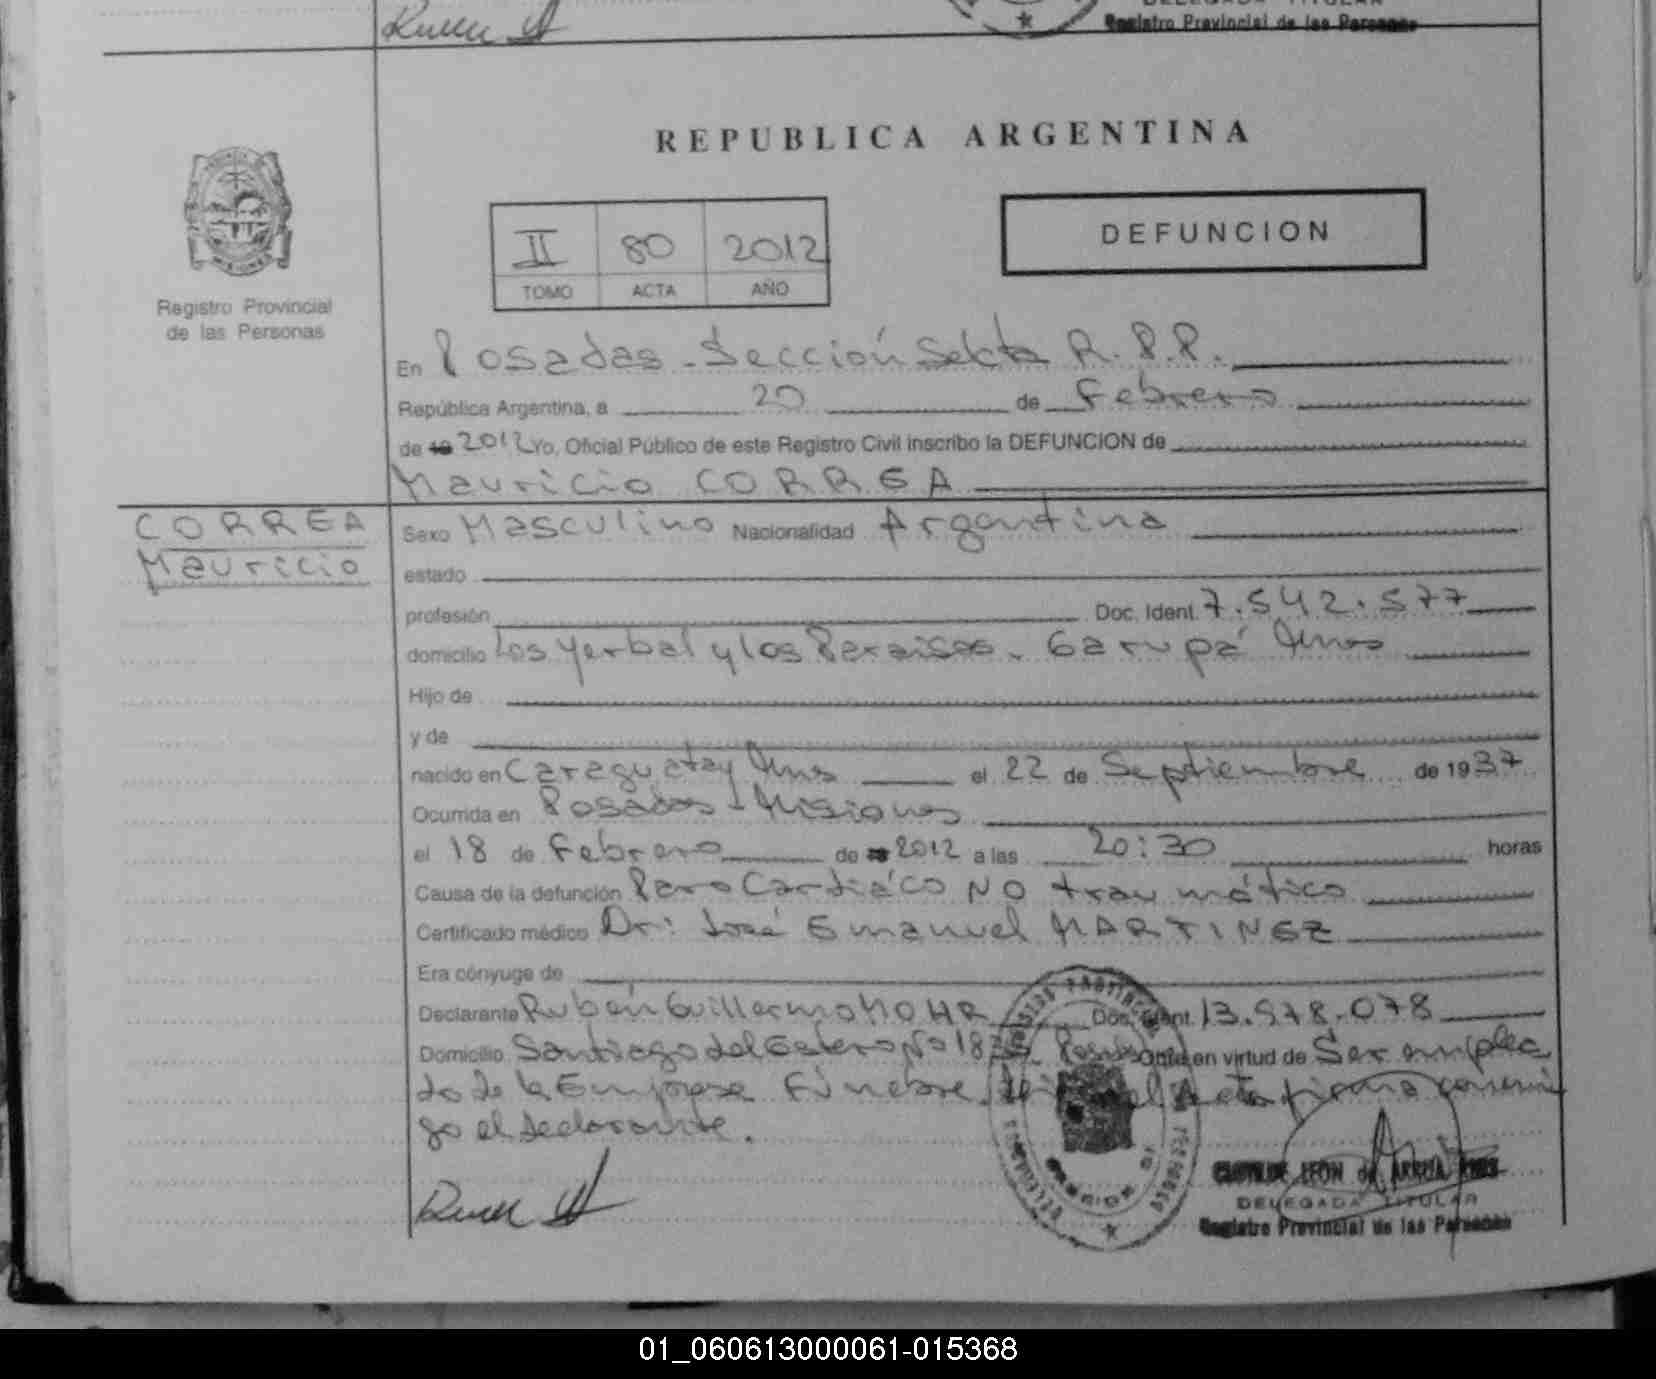 DELEGADA TITULAR
Registro Provincial de las Personas
REPUBLICA ARGENTINA
II 80 2012
TOMO ACTA AÑO
DEFUNCION
Registro Provincial
de las Personas
En Posadas - Sección Sexta R.P.P.
República Argentina, a 20 de Febrero
de 19 2012 Yo, Oficial Público de este Registro Civil inscribo la DEFUNCION de
Mauricio CORREA
CORREA
Mauricio
Sexo Masculino Nacionalidad Argentina
estado
profesión Doc. Ident. 7.542.577
domicilio Los Yerbal y los Paraisos - Garupá Mnes
Hijo de
y de
nacido en Caraguatay Mnes el 22 de Septiembre de 1937
Ocurrida en Posadas - Misiones
el 18 de Febrero de 19 2012 a las 20:30 horas
Causa de la defunción Paro Cardiáco NO traumático
Certificado médico Dr: José Emanuel MARTINEZ
Era cónyuge de
Declarante Rubén Guillermo MOHR Doc. Ident. 13.978.078
Domicilio Santiago del Estero Nº 18 Posadas Obra en virtud de Ser emplea
do de la Empresa Fúnebre el Acta firma conmi
go el declarante.
CLOTILDE LEON de ARRUA
DELEGADA TITULAR
Registro Provincial de las Personas
01_060613000061-015368